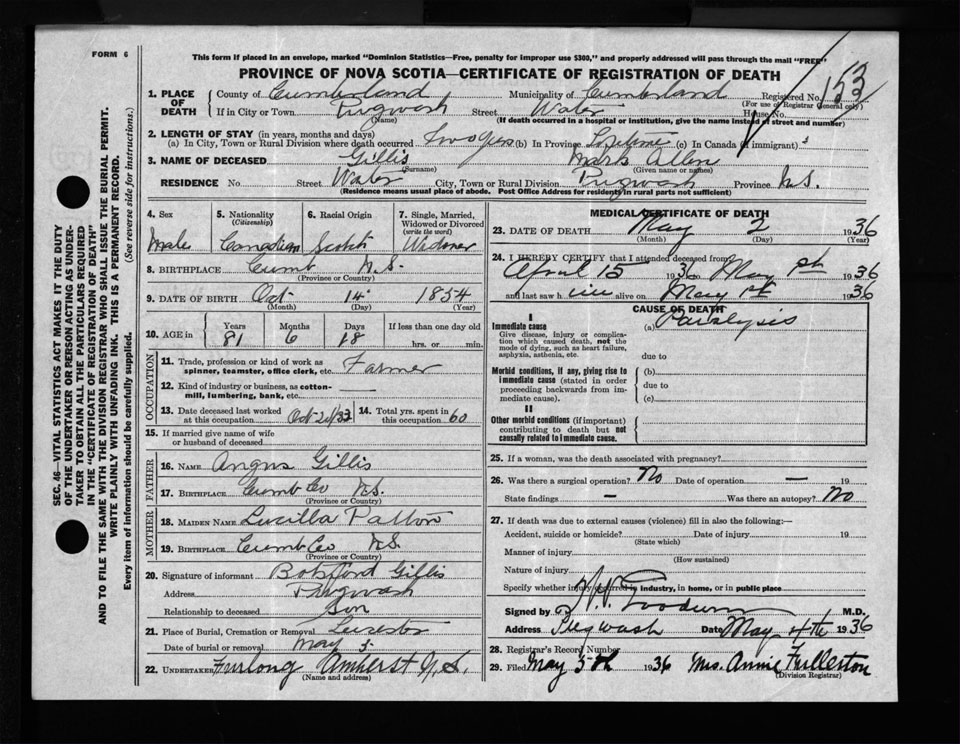 FORM 6
This form if placed in an envelope, marked "Dominion Statistics—Free, penalty for improper use $300," and properly addressed will pass through the mail "FREE"
PROVINCE OF NOVA SCOTIA—CERTIFICATE OF REGISTRATION OF DEATH
153
1. PLACE OF DEATH County of Cumberland Municipality of Cumberland Registered No.
(For use of Registrar General only)
If in City or Town Pugwash Street Water House No.
(Name) (If death occurred in a hospital or institution, give the name instead of street and number)
2. LENGTH OF STAY (in years, months and days)
(a) In City, Town or Rural Division where death occurred two yrs (b) In Province Lifetime (c) In Canada (if immigrant)
3. NAME OF DECEASED Gillis Mark Allen
(Surname) (Given name or names)
RESIDENCE No. Street Water City, Town or Rural Division Pugwash Province N.S.
(Residence means usual place of abode. Post Office Address for residents in rural parts not sufficient)
4. Sex 5. Nationality (Citizenship) 6. Racial Origin 7. Single, Married, Widowed or Divorced (write the word)
Male Canadian Scotch Widower
8. BIRTHPLACE Cumb N.S.
(Province or Country)
9. DATE OF BIRTH Oct 14 1854
(Month) (Day) (Year)
10. AGE in Years Months Days If less than one day old
81 6 18 hrs. or min.
OCCUPATION
11. Trade, profession or kind of work as spinner, teamster, office clerk, etc. Farmer
12. Kind of industry or business, as cotton-mill, lumbering, bank, etc. —
13. Date deceased last worked at this occupation 14. Total yrs. spent in this occupation 60
15. If married give name of wife or husband of deceased
FATHER
16. NAME Angus Gillis
17. BIRTHPLACE Cumb Co N.S.
(Province or Country)
MOTHER
18. MAIDEN NAME Lucilla Patton
19. BIRTHPLACE Cumb Co N.S.
(Province or Country)
20. Signature of informant Botsford Gillis
Address Pugwash
Relationship to deceased Son
21. Place of Burial, Cremation or Removal
Date of burial or removal May 5
22. UNDERTAKER Furlong Amherst N.S.
(Name and address)
MEDICAL CERTIFICATE OF DEATH
23. DATE OF DEATH May 2 1936
(Month) (Day) (Year)
24. I HEREBY CERTIFY that I attended deceased from
April 15 1936 May 1st 1936
and last saw him alive on May 1st 1936
CAUSE OF DEATH
I
Immediate cause (a) Paralysis
Give disease, injury or complication which caused death, not the mode of dying, such as heart failure, asphyxia, asthenia, etc.
due to
Morbid conditions, if any, giving rise to immediate cause (stated in order proceeding backwards from immediate cause).
(b)
due to
(c)
II
Other morbid conditions (if important) contributing to death but not causally related to immediate cause.
25. If a woman, was the death associated with pregnancy?
26. Was there a surgical operation? No Date of operation — 19
State findings — Was there an autopsy? No
27. If death was due to external causes (violence) fill in also the following:—
Accident, suicide or homicide? Date of injury 19
(State which)
Manner of injury
(How sustained)
Nature of injury
Specify whether injury occurred in industry, in home, or in public place
Signed by Goodwin M.D.
Address Pugwash Date May 4th 1936
28. Registrar's Record Number
29. Filed May 5th 1936 Mrs. Annie Fullerton
(Division Registrar)
SEC. 46—VITAL STATISTICS ACT MAKES IT THE DUTY
OF THE UNDERTAKER OR PERSON ACTING AS UNDER-
TAKER TO OBTAIN ALL THE PARTICULARS REQUIRED
IN THE "CERTIFICATE OF REGISTRATION OF DEATH"
AND TO FILE THE SAME WITH THE DIVISION REGISTRAR WHO SHALL ISSUE THE BURIAL PERMIT.
WRITE PLAINLY WITH UNFADING INK. THIS IS A PERMANENT RECORD.
Every item of information should be carefully supplied. (See reverse side for instructions.)